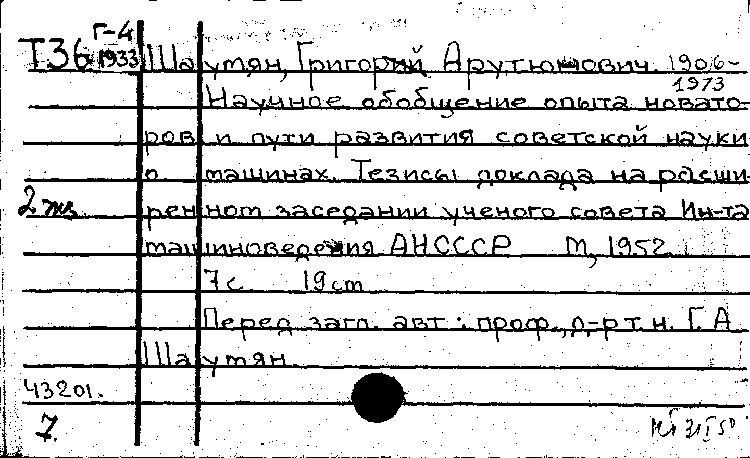 Г-4
Т36 1933 Шаумян, Григорий Арутюнович. 1906-
1973
Научное обобщение опыта новато-
ров и пути развития советской науки
о машинах. Тезисы доклада на расши-
2 экз. ренном заседании ученого совета Ин-та
машиноведения АНСССР М, 1952
7с 19cm
Перед загл. авт.: проф., д-р т. н. Г. А
Шаумян.
43201.
7.